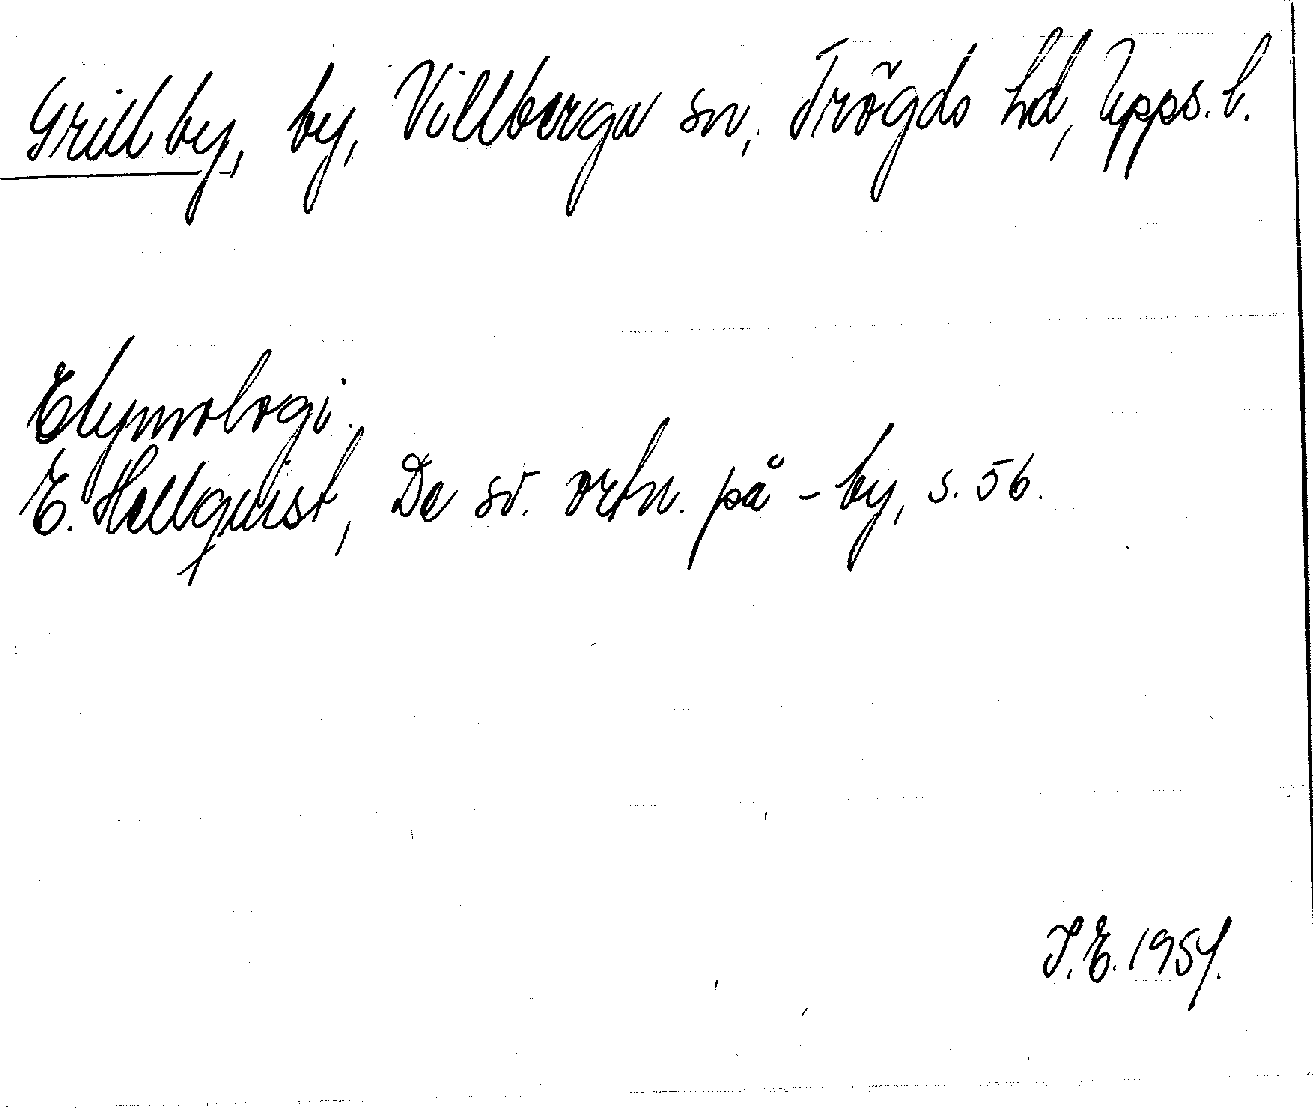 Grillby, by, Villberga sn, Trögds hd, Upps. l.
Etymologi.
E. Hellquist, De sv. ortn. på -by, s. 56.
S.E. 1954.